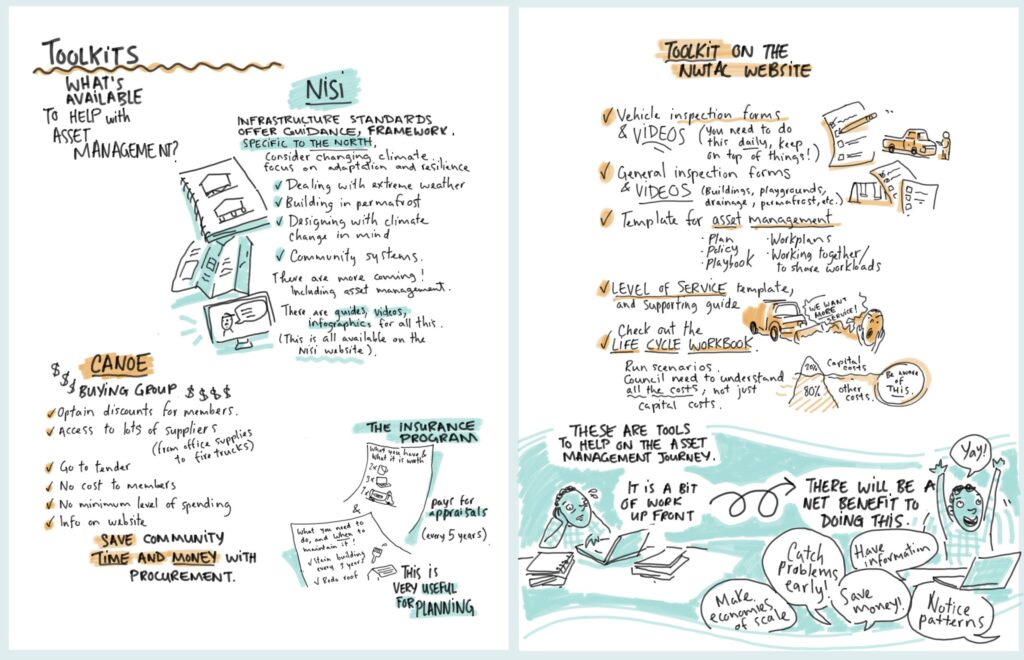 TOOLKITS
WHAT'S
AVAILABLE
TO HELP with
ASSET
MANAGEMENT?
NISI
INFRASTRUCTURE STANDARDS
OFFER GUIDANCE, FRAMEWORK.
SPECIFIC TO THE NORTH,
Consider changing climate...
focus on adaptation and resilience
✓ Dealing with extreme weather
✓ Building in permafrost
✓ Designing with climate
change in mind
✓ Community systems.
There are more coming!
Including asset management.
There are guides, videos,
infographics for all this.
(This is all available on the
NiSi website).
CANOE
$$$
BUYING GROUP $$$$
✓ Optain discounts for members.
✓ Access to lots of suppliers
(from office supplies
to fire trucks)
✓ Go to tender
✓ No cost to members
✓ No minimum level of spending
✓ Info on website
SAVE COMMUNITY
TIME AND MONEY WITH
PROCUREMENT.
THE INSURANCE
PROGRAM
What you have &
What it is worth
2x
3x
7x
&
What you need to
do, and when to
maintain it!
✓ Stain building
every 5 years
✓ Redo roof
pays for
appraisals
(every 5 years)
THIS IS
VERY USEFUL
FOR PLANNING
TOOLKIT ON THE
NWTAC WEBSITE
✓ Vehicle inspection forms
& VIDEOS (You need to do
this daily, keep
on top of things!)
✓ General inspection forms
& VIDEOS (Buildings, playgrounds,
drainage, permafrost, etc.)
✓ Template for asset management
· Plan
· Policy
· Playbook
· Workplans
· Working together/
to share workloads
✓ LEVEL OF SERVICE template,
and supporting guide
WE WANT
MORE
SERVICE!
✓ Check out the
LIFE CYCLE WORKBOOK.
Run scenarios.
Council need to understand
all the costs, not just
capital costs.
20% Capital
costs
80% other
costs.
Be aware
of
THIS.
THESE ARE TOOLS
TO HELP ON THE ASSET
MANAGEMENT JOURNEY.
IT IS A BIT
OF WORK
UP FRONT
THERE WILL BE A
NET BENEFIT TO
DOING THIS.
Yay!
Catch
problems
early!
Have
information
Make
economies
of scale
Save
money!
Notice
patterns